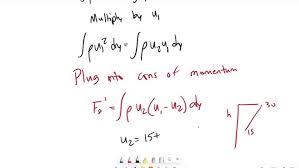 Multiply by u₁
∫ρu₁²dy = ∫ρu₂u₁dy
Plug into cons of momentum
Fₓ' = ∫ρu₂(u₁-u₂)dy
u₂ = 15+
h
30
15